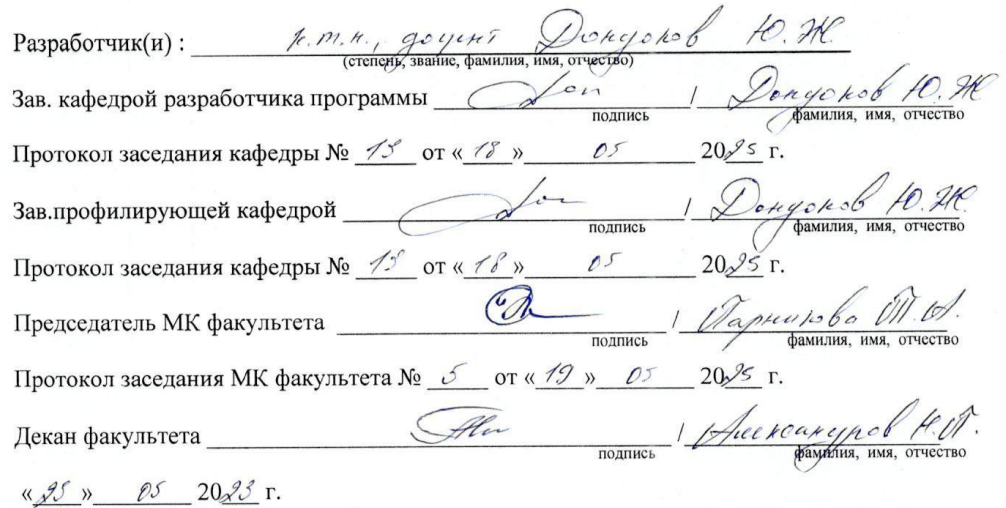 Разработчик(и) : к.т.н., доцент Дондоков Ю.Ж
(степень, звание, фамилия, имя, отчество)
Зав. кафедрой разработчика программы / Дондоков Ю.Ж
подпись фамилия, имя, отчество
Протокол заседания кафедры № 13 от « 18 » 05 20 г.
Зав.профилирующей кафедрой / Дондоков Ю.Ж.
подпись фамилия, имя, отчество
Протокол заседания кафедры № 13 от « 18 » 05 20 г.
Председатель МК факультета / Парникова Т.А.
подпись фамилия, имя, отчество
Протокол заседания МК факультета № 5 от « 19 » 05 20 г.
Декан факультета / Александров Н.П.
подпись фамилия, имя, отчество
« 25 » 05 2023 г.